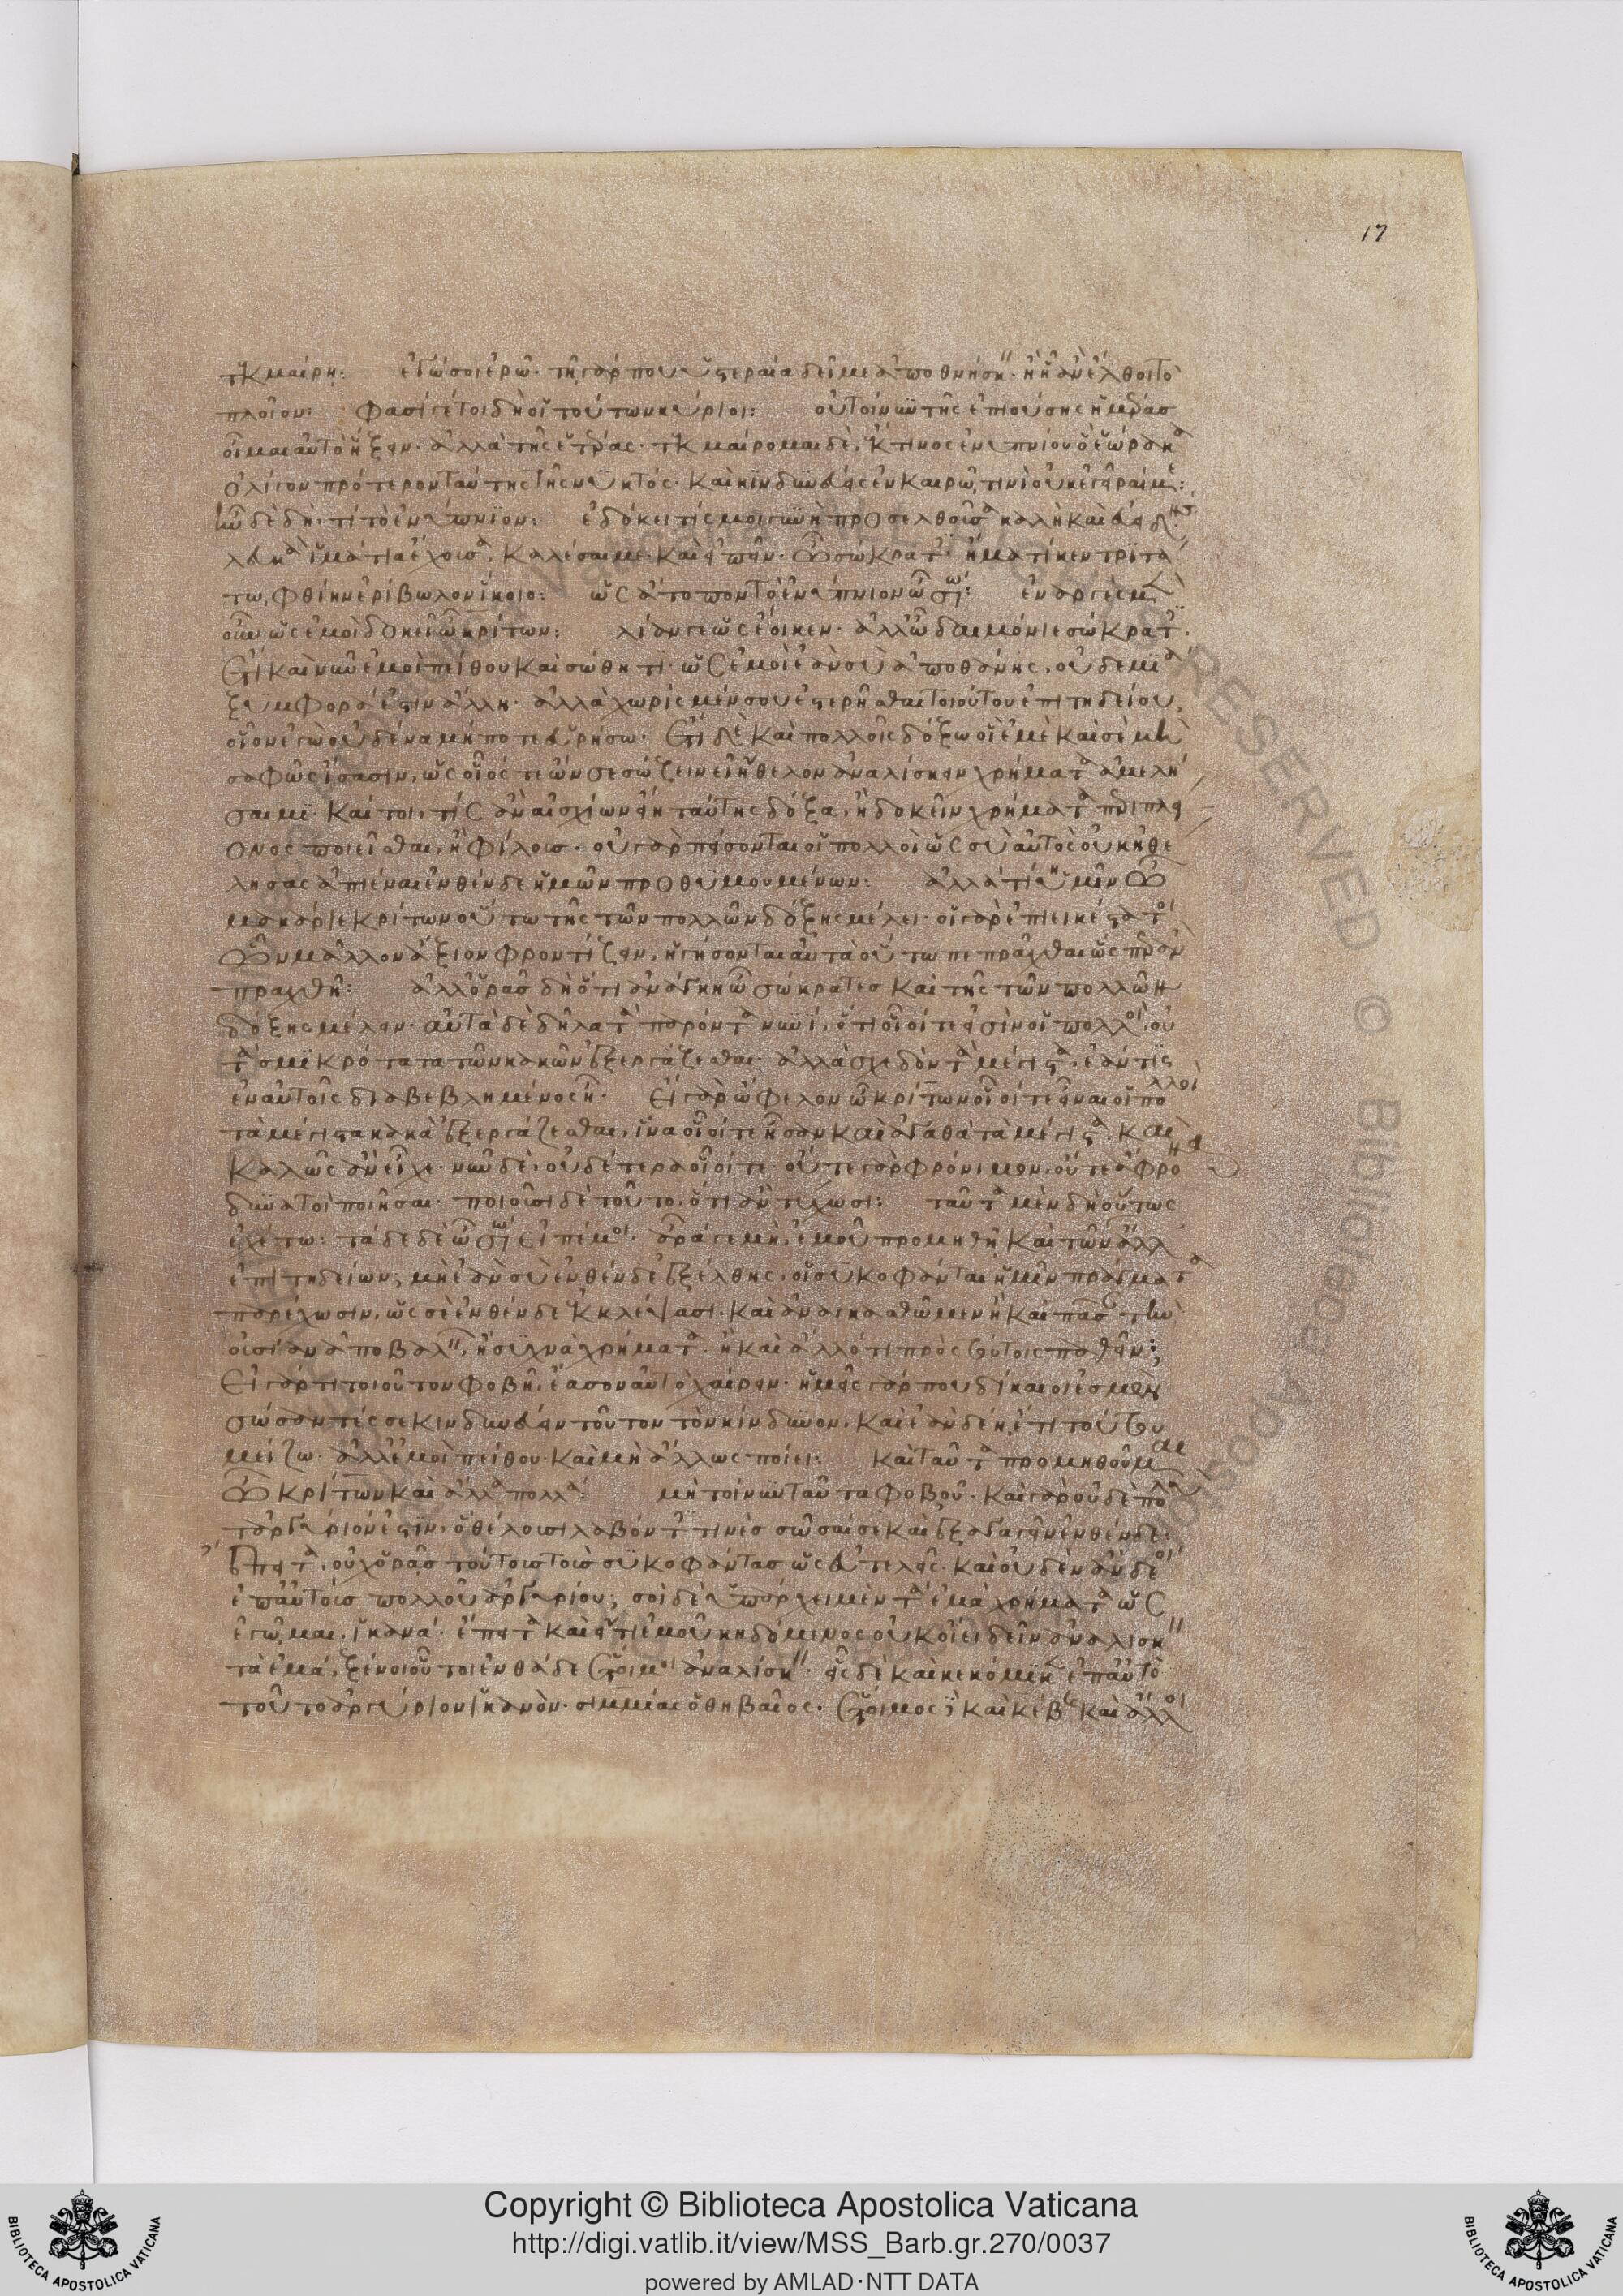 17
τεκμαίρῃ: ἐγώ σοι ἐρῶ· τῇ γάρ που ὑστεραία δεῖ με ἀποθνήσκειν· ἢ ᾗ ἂν ἔλθοι τὸ
πλοῖον: φασί γέ τοι δὴ οἱ τούτων κύριοι: οὐ τοίνυν τῆς ἐπιούσης ἡμέρας
οἶμαι αὐτὸ ἥξειν· ἀλλὰ τῆς ἑτέρας· τεκμαίρομαι δὲ, ἔκ τινος ἐνυπνίου ὃ ἑώρακα
ὀλίγον πρότερον ταύτης τῆς νυκτός· καὶ κινδυνεύεις ἐν καιρῷ τινὶ οὐκ ἐγεῖραί με:
ἦν δὲ δὴ τί τὸ ἐνύπνιον: ἐδόκει τίς μοι γυνὴ προσελθοῦσα καλὴ καὶ εὐειδὴς
λευκὰ ἱμάτια ἔχουσα, καλέσαι με· καὶ εἰπεῖν· ὦ σώκρατες ἤματί κεν τριτά
τω, φθίην ἐρίβωλον ἵκοιο: ὡς ἄτοπον τὸ ἐνύπνιον ὦ σώκρατες: ἐναργὲς μὲν
οὖν ὥς ἐμοὶ δοκεῖ ὦ κρίτων: λίαν γε ὡς ἔοικεν· ἀλλ' ὦ δαιμόνιε σώκρατες·
ἔτι καὶ νῦν ἐμοὶ πείθου καὶ σώθητι· ὡς ἐμοὶ ἐὰν σὺ ἀποθάνῃς, οὐδεμία
ξυμφορά ἐστιν ἄλλη· ἀλλὰ χωρὶς μὲν σοῦ ἐστερῆσθαι τοιούτου ἐπιτηδείου,
οἷον ἐγὼ οὐδένα μή ποτε εὑρήσω· ἔτι δὲ καὶ πολλοῖς δόξω οἳ ἐμὲ καὶ σὲ μὴ
σαφῶς ἴσασιν, ὡς οἷός τε ὤν σε σώζειν εἰ ἤθελον ἀναλίσκειν χρήματα ἀμελή
σαιμι· καίτοι, τίς ἂν αἰσχίων εἴη ταύτης δόξα, ἢ δοκεῖν χρήματα περὶ πλεί
ονος ποιεῖσθαι, ἢ φίλους· οὐ γὰρ πείσονται οἱ πολλοὶ ὡς σὺ αὐτὸς οὐκ ἠθέ
λησας ἀπιέναι ἐνθένδε ἡμῶν προθυμουμένων: ἀλλὰ τί ἡμῖν ὦ
μακάριε κρίτων οὕτω τῆς τῶν πολλῶν δόξης μέλει· οἱ γὰρ ἐπιεικέστατοι
ὧν μᾶλλον ἄξιον φροντίζειν, ἡγήσονται αὐτὰ οὕτω πεπρᾶχθαι ὥσπερ ἂν
πραχθῇ: ἀλλ' ὁρᾷς δὴ ὅτι ἀνάγκη ὦ σώκρατες καὶ τῆς τῶν πολλῶν
δόξης μέλειν· αὐτὰ δὲ δῆλα τὰ παρόντα νυνί, ὅτι οἷοί τε εἰσὶν οἱ πολλοί, οὐ
τὰ σμικρότατα τῶν κακῶν ἐξεργάζεσθαι· ἀλλὰ σχεδὸν τὰ μέγιστα, ἐάν τις
ἐν αὐτοῖς διαβεβλημένος ᾖ· εἰ γὰρ ὤφελον ὦ κρίτων οἷοί τε εἶναι οἱ πολλοὶ
τὰ μέγιστα κακὰ ἐξεργάζεσθαι, ἵνα οἷοί τε ἦσαν καὶ ἀγαθὰ τὰ μέγιστα· καὶ
καλῶς ἂν εἶχε· νῦν δὲ, οὐδέτερα οἷοί τε· οὔτε γὰρ φρόνιμον, οὔτε ἄφρονα
δυνατοὶ ποιῆσαι· ποιοῦσι δὲ τοῦτο, ὅτι ἂν τύχωσι: ταῦτα μὲν δὴ οὕτως
ἐχέτω: τάδε δὲ ὦ σώκρατες εἰπέ μοι· ἆρά γε μὴ, ἐμοῦ προμηθῇ καὶ τῶν ἄλλων
ἐπιτηδείων, μὴ ἐὰν σὺ ἐνθένδε ἐξέλθῃς, οἱ συκοφάνται ἡμῖν πράγματα
παρέχωσιν, ὡς σὲ ἐνθένδε ἐκκλέψασι· καὶ ἀναγκασθῶμεν ἢ καὶ πᾶσαν τὴν
οὐσίαν ἀποβαλεῖν, ἢ συχνὰ χρήματα· ἢ καὶ ἄλλό τι πρὸς τούτοις παθεῖν;
εἰ γάρ τι τοιοῦτον φοβῇ, ἔασον αὐτὸ χαίρειν· ἡμεῖς γάρ που δίκαιοι ἐσμὲν
σώσαντές σε κινδυνεύειν τοῦτον τὸν κίνδυνον, καὶ ἐὰν δέῃ, ἔτι τούτου
μείζω· ἀλλ' ἐμοὶ πείθου καὶ μὴ ἄλλως ποίει: καὶ ταῦτα προμηθοῦμαι
ὦ κρίτων καὶ ἄλλα πολλά: μὴ τοίνυν ταῦτα φοβοῦ· καὶ γὰρ οὐδὲ πολὺ
τἀργύριόν ἐστιν, ὃ θέλουσι λαβόντες τινὲς σῶσαί σε καὶ ἐξαγαγεῖν ἐνθένδε·
ἔπειτα, οὐχ ὁρᾷς τούτους τοὺς συκοφάντας ὡς εὐτελεῖς· καὶ οὐδὲν ἂν δέοι
ἐπ' αὐτοὺς πολλοῦ ἀργυρίου; σοὶ δὲ ὑπάρχει μὲν τὰ ἐμὰ χρήματα ὡς
ἐγῷμαι, ἱκανά· ἔπειτα καὶ εἴ τι ἐμοῦ κηδόμενος οὐκ οἴει δεῖν ἀναλίσκειν
τὰ ἐμά, ξένοι οὗτοι ἐνθάδε ἕτοιμοι ἀναλίσκειν· εἷς δὲ καὶ κεκόμικεν ἐπ' αὐτὸ
τοῦτο ἀργύριον ἱκανὸν· σιμμίας ὁ θηβαῖος· ἕτοιμος δὲ καὶ κέβης καὶ ἄλλοι
Copyright © Biblioteca Apostolica Vaticana
http://digi.vatlib.it/view/MSS_Barb.gr.270/0037
powered by AMLAD·NTT DATA